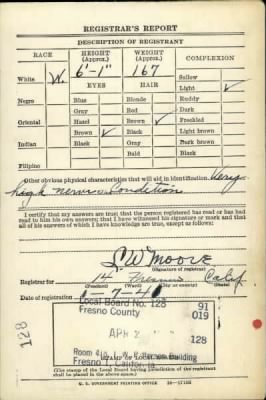 REGISTRAR'S REPORT
DESCRIPTION OF REGISTRANT
RACE
HEIGHT (Approx.)
WEIGHT (Approx.)
COMPLEXION
White W.
6'-1"
167
Sallow
EYES
HAIR
Light ✓
Negro
Blue
Blonde
Ruddy
Gray
Red
Dark
Oriental
Hazel
Brown ✓
Freckled
Brown ✓
Black
Light brown
Indian
Black
Gray
Dark brown
Bald
Black
Filipino
Other obvious physical characteristics that will aid in identification. Very
high nervous Condition
I certify that my answers are true; that the person registered has read or has had
read to him his own answers; that I have witnessed his signature or mark and that
all of his answers of which I have knowledge are true, except as follows:
S.W. Moore
(Signature of registrar)
Registrar for 14 Fresno Calif.
(Precinct) (Ward) (City or county)
Date of registration
Local Board No. 128 91
Fresno County 019
APR 128
128
Building
Fresno 1, California
(STAMP OF LOCAL BOARD)
(The stamp of the Local Board having jurisdiction of the registrant
shall be placed in the above space.)
U. S. GOVERNMENT PRINTING OFFICE 16—17105